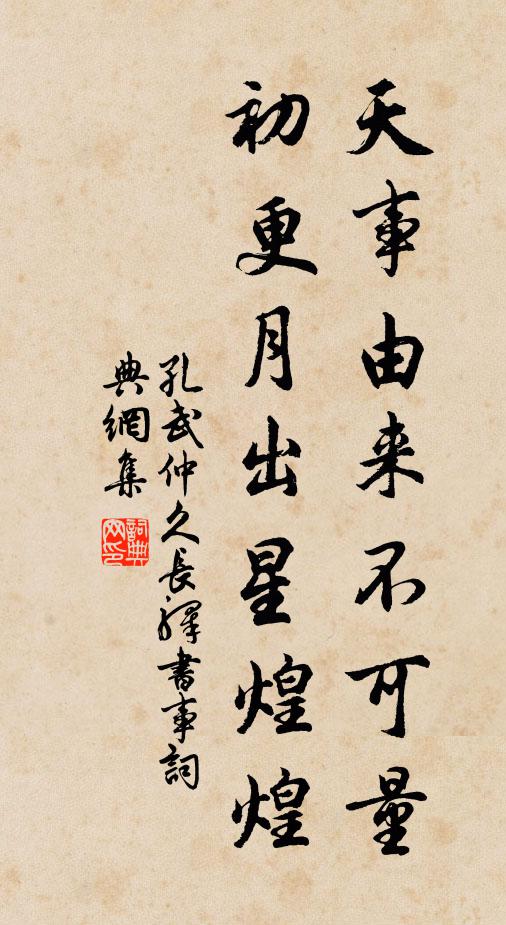 天事由来不可量
初更月出星煌煌
孔武仲久長驛書事詞
典網集
詞典
网印